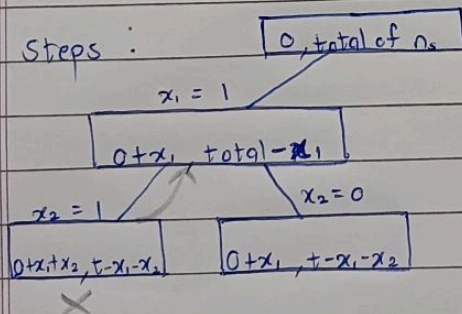 Steps :
0, total of ns
x₁ = 1
0+x₁, total-x₁
x₂ = 1
x₂=0
0+x₁+x₂, t-x₁-x₂
0+x₁, t-x₁-x₂